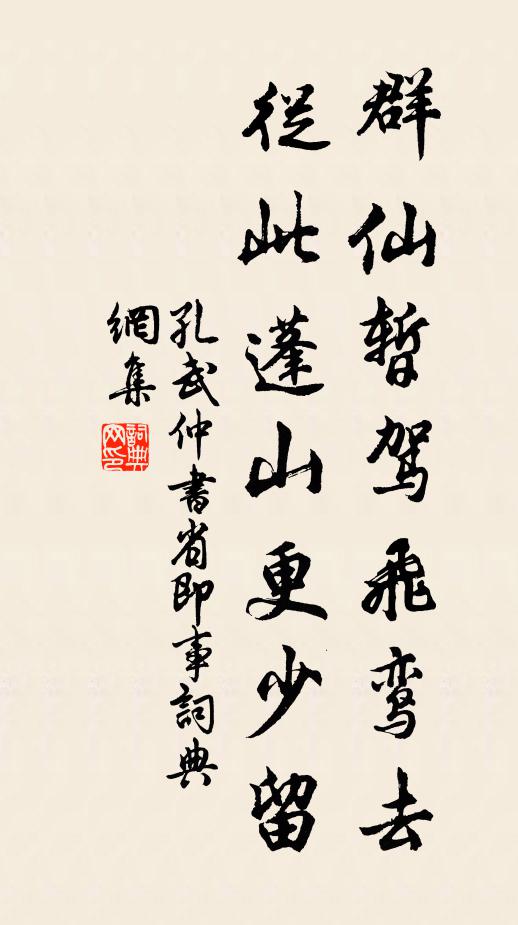 群仙暫駕飛鸾去
從此蓬山更少留
孔武仲書省即事詞典
網集
詞典網印